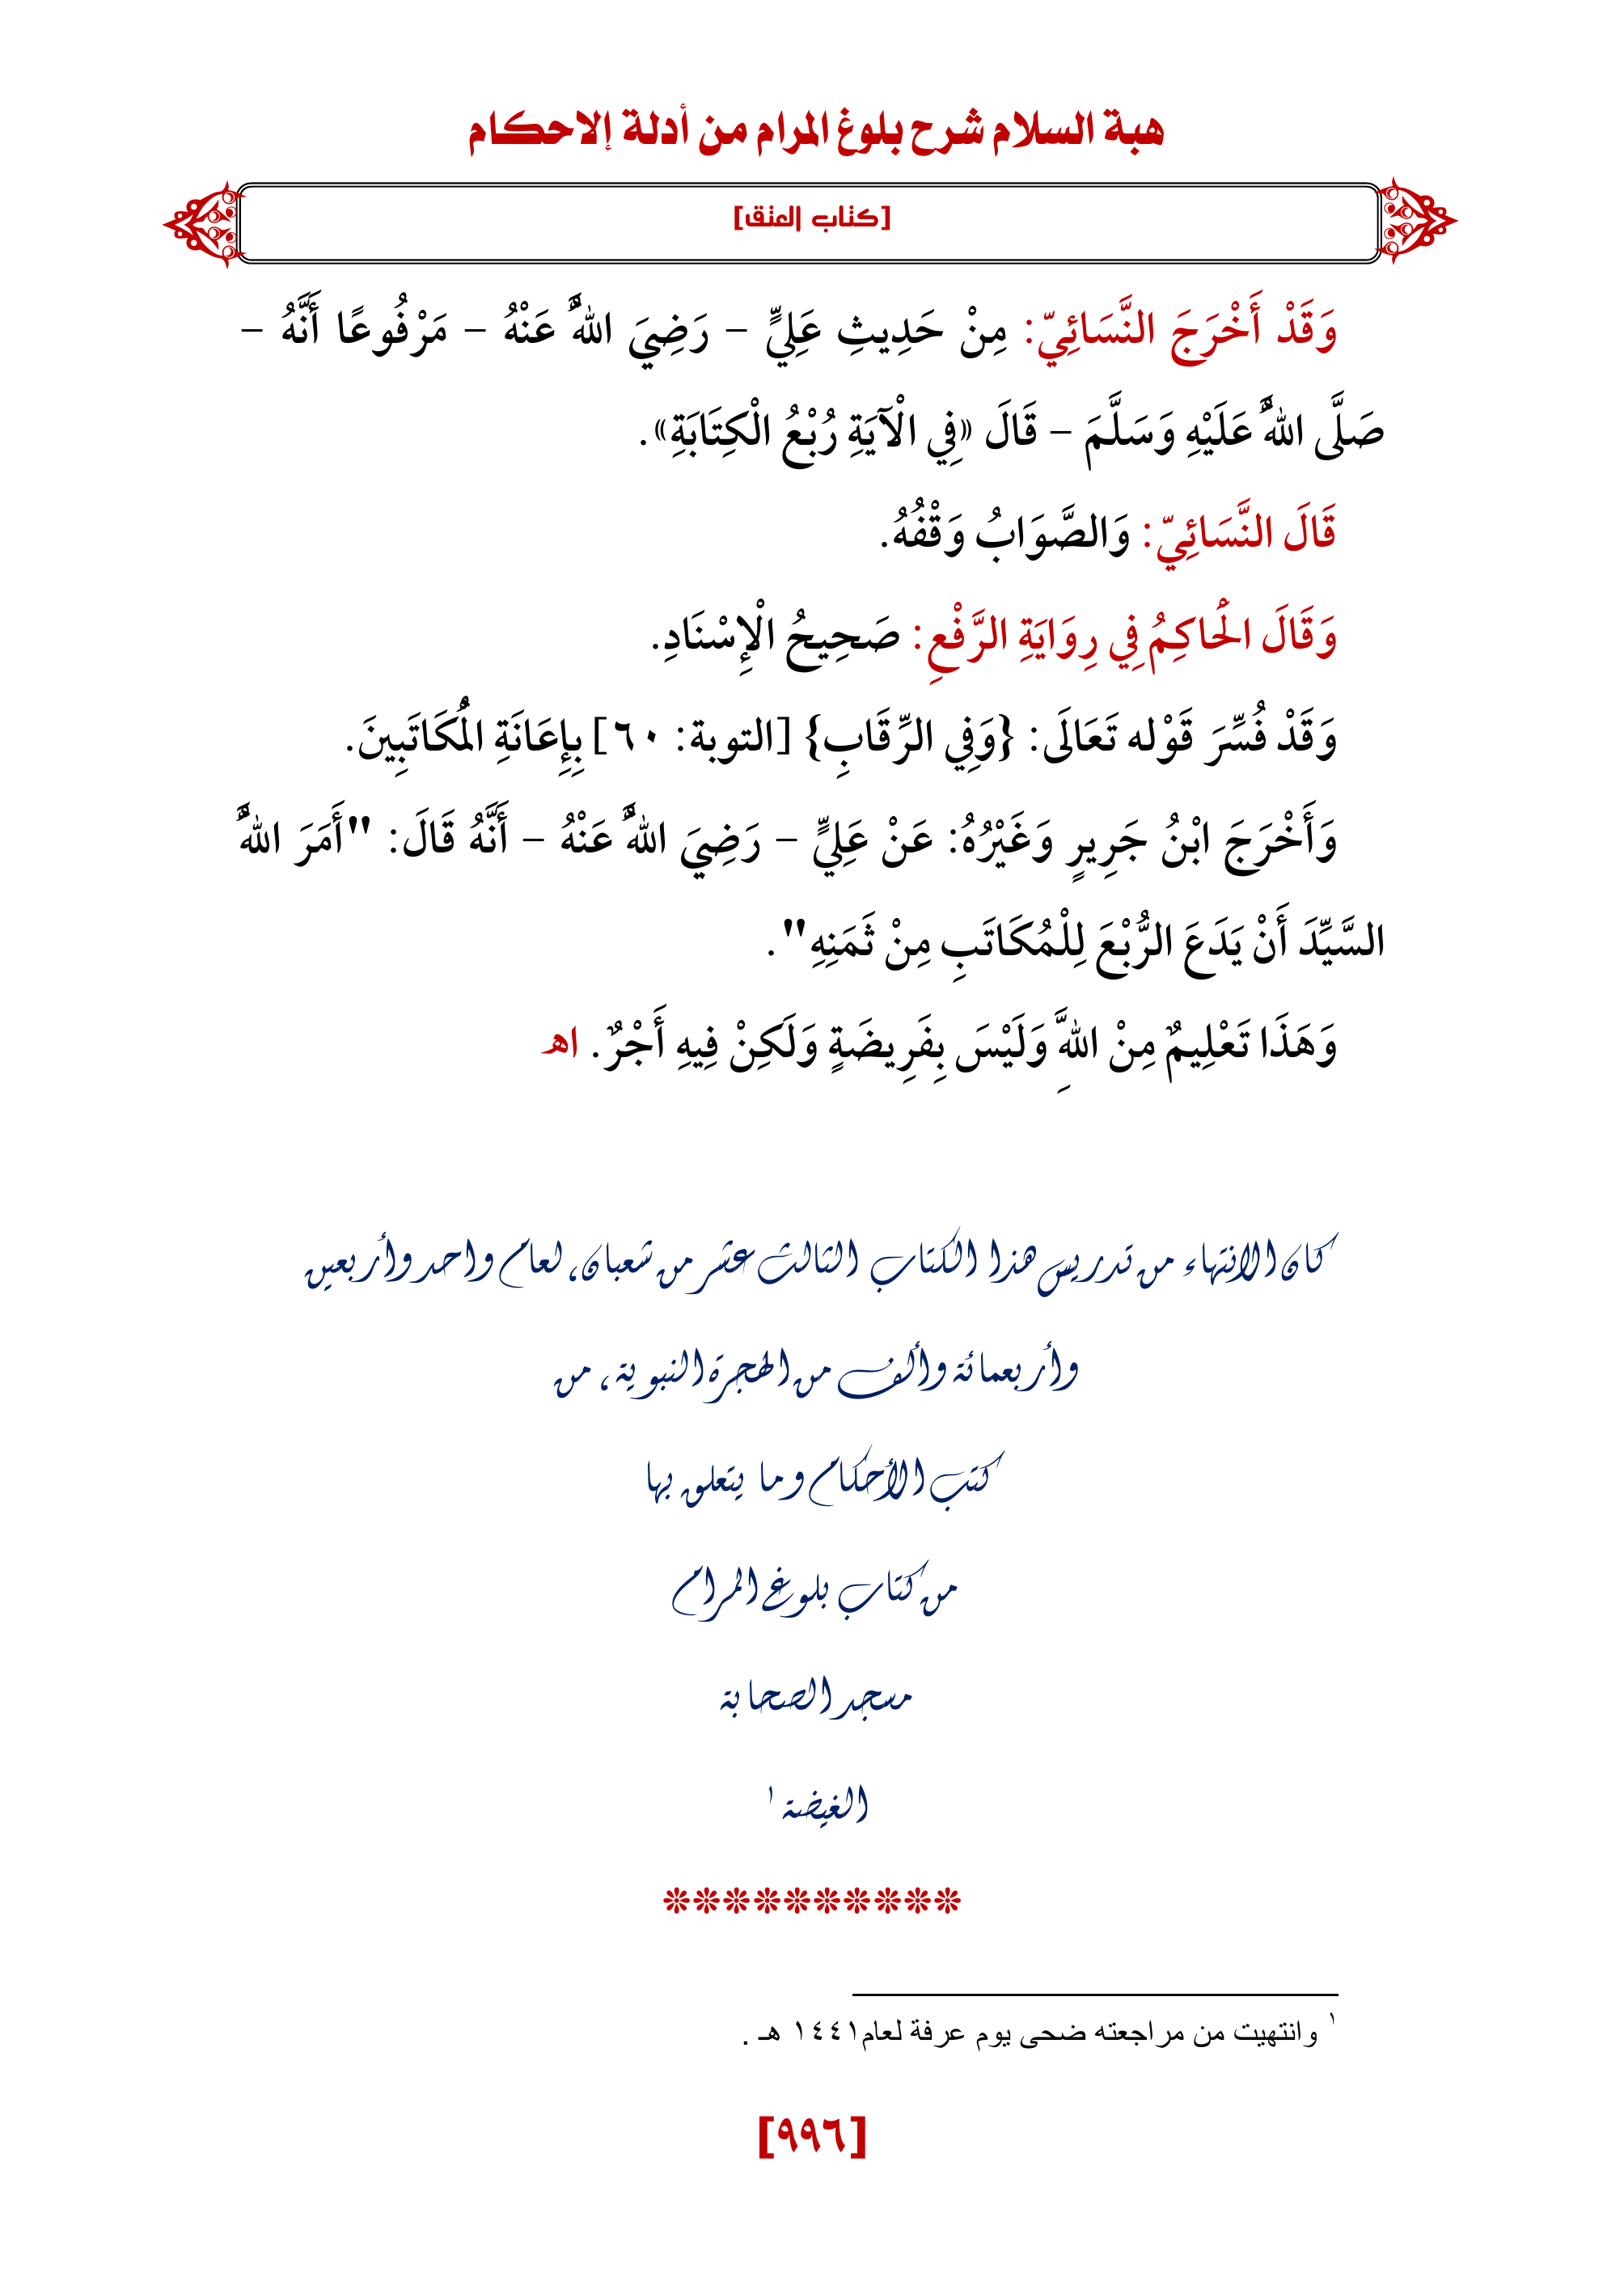 هبة السلام شرح بلوغ المرام من أدلة إلاحكام
[كتاب العتق]
وَقَدْ أَخْرَجَ النَّسَائِيّ: مِنْ حَدِيثِ عَلِيٍّ – رَضِيَ اللهُ عَنْهُ – مَرْفُوعًا أَنَّهُ –
صَلَّى اللهُ عَلَيْهِ وَسَلَّمَ – قَالَ «فِي الْآيَةِ رُبْعُ الْكِتَابَةِ».
قَالَ النَّسَائِيّ: وَالصَّوَابُ وَقْفُهُ.
وَقَالَ الْحَاكِمُ فِي رِوَايَةِ الرَّفْعِ: صَحِيحُ الْإِسْنَادِ.
وَقَدْ فُسِّرَ قَوْله تَعَالَى: {وَفِي الرِّقَابِ} [التوبة: ٦٠] بِإِعَانَةِ الْمُكَاتَبِينَ.
وَأَخْرَجَ ابْنُ جَرِيرٍ وَغَيْرُهُ: عَنْ عَلِيٍّ – رَضِيَ اللهُ عَنْهُ – أَنَّهُ قَالَ: "أَمَرَ اللهُ
السَّيِّدَ أَنْ يَدَعَ الرُّبْعَ لِلْمُكَاتَبِ مِنْ ثَمَنِهِ".
وَهَذَا تَعْلِيمٌ مِنْ اللهِ وَلَيْسَ بِفَرِيضَةٍ وَلَكِنْ فِيهِ أَجْرٌ. اهـ
كان الانتهاء من تدريس هذا الكتاب الثالث عشر من شعبان، لعام واحد وأربعين
وأربعمائة وألف من الهجرة النبوية، من
كتب الأحكام وما يتعلق بها
من كتاب بلوغ المرام
مسجد الصحابة
الغيضة ١
❊❊❊❊❊❊❊❊❊❊
١ وانتهيت من مراجعته ضحى يوم عرفة لعام١٤٤١ هـ .
[٩٩٦]